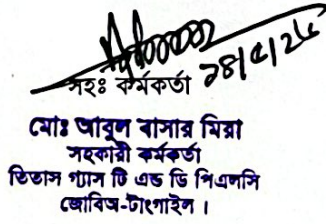 সহঃ কর্মকর্তা ২৪/৫/২৫
মোঃ আবুল বাসার মিয়া
সহকারী কর্মকর্তা
তিতাস গ্যাস টি এন্ড ডি পিএলসি
জোবিঅ-টাংগাইল।